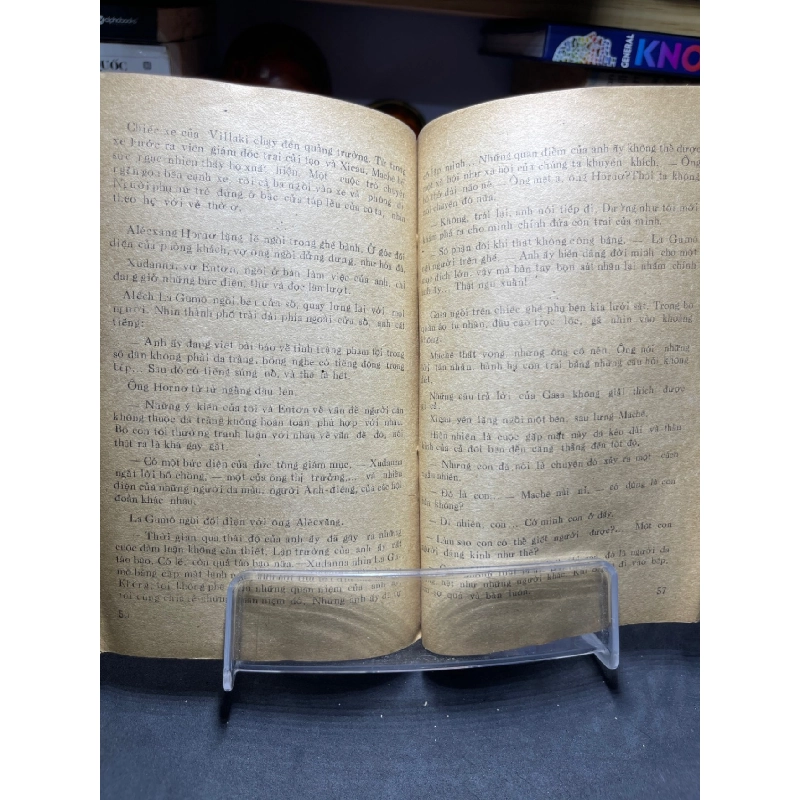 alphabooks
UỐC
GENERAL
KNO
Chiếc xe của Villaki chạy đến quảng trường. Từ trong
xe bước ra viên giám đốc trại cải tạo và Xicsu. Maché
ngạc nhiên thấy họ xuất hiện. Một cuộc trò chuyện
ngắn gọn bên cạnh xe, rồi cả ba ngồi vào xe và phóng đi.
Người phụ nữ trẻ đứng ở bậc cửa túp lều của cô ta, nhìn
theo họ với vẻ thờ ơ.
Alécxăng Hornơ lặng lẽ ngồi trong ghế bành. Ở góc đối
diện của phòng khách, vợ ông ngồi dửng dưng, như hóa đá.
Xudanna, vợ Entơn, ngồi ở bàn làm việc của anh, chị
đang giở những bức điện, thư và đọc lần lượt.
Aléch La Gumơ ngồi bên cửa sổ, quay lưng lại với mọi
người. Nhìn thành phố trải dài phía ngoài cửa sổ, anh cất
tiếng:
— Anh ấy đang viết bài báo về tình trạng phạm tội trong
số dân không phải da trắng, bỗng nghe có tiếng động trong
bếp... Sau đó có tiếng súng nổ, và thế là hết.
Ông Hornơ từ từ ngẩng đầu lên.
— Những ý kiến của tôi và Entơn về vấn đề người dân
không thuộc da trắng không hoàn toàn phù hợp với nhau.
Bố con tôi thường tranh luận với nhau về vấn đề đó, nói
thật ra là khá gay gắt.
— Có một bức điện của đức tổng giám mục, — Xudanna
ngắt lời bố chồng, — một của ông thị trưởng,... và nhiều
điện của những người da màu, người Anh-điêng, của các hội
đoàn khác nhau.
La Gumơ ngồi đối diện với ông Alécxăng.
— Thời gian qua thái độ của anh ấy đã gây ra những
cuộc đàm luận không cần thiết. Lập trường của anh ấy rất
táo bạo. Có lẽ, còn quá táo bạo nữa. — Xudanna nhìn La Gu-
mơ bằng cặp mắt lạnh
Không, tôi không phê những quan niệm của anh
tôi cũng chia sẻ những niệm đó. Nhưng anh ấy
mình... Những quan điểm của anh ấy không thể được
một xã hội như xã hội của chúng ta khuyến khích. — Ông
thở dài não nề. — Ông mệt ạ, ông Hornơ? Thôi ta không
nói chuyện đó nữa.
— Không, trái lại, anh nói tiếp đi. Dường như tôi mới
khám phá ra cho mình chính đứa con trai của mình.
— Số phận đôi khi thật không công bằng. — La Gumơ
ngả người trên ghế. — Anh ấy hiến dâng đời mình cho một
mục đích lớn, vậy mà bàn tay bọn sát nhân lại nhằm chính
anh ấy... Thật ngu xuẩn!
Gasa ngồi trên chiếc ghế phụ bên kia lưới sắt. Trong bộ
quần áo tù nhân, đầu cạo trọc lốc, gã nhìn vào khoảng
không.
Maché thất vọng nhưng ông cố nén. Ông nói những
lời tàn nhẫn, hành hạ con trai bằng những câu hỏi không
dứt.
Những câu trả lời của Gasa không giải thích được
gì cả.
Xicsu yên lặng ngồi một bên, sau lưng Maché.
Hiển nhiên là cuộc gặp mặt này đã kéo dài và thần
kinh của cả đôi bên đều căng thẳng đến tột độ.
— Nhưng con đã nói là chuyện đó xảy ra một cách
ngẫu nhiên.
— Đó là con... — Maché nài nỉ, — có đúng là con
không?
— Dĩ nhiên, con... Có mình con ở đấy.
— Làm sao con có thể giết người được?... Một con
người đáng kính như thế?
57